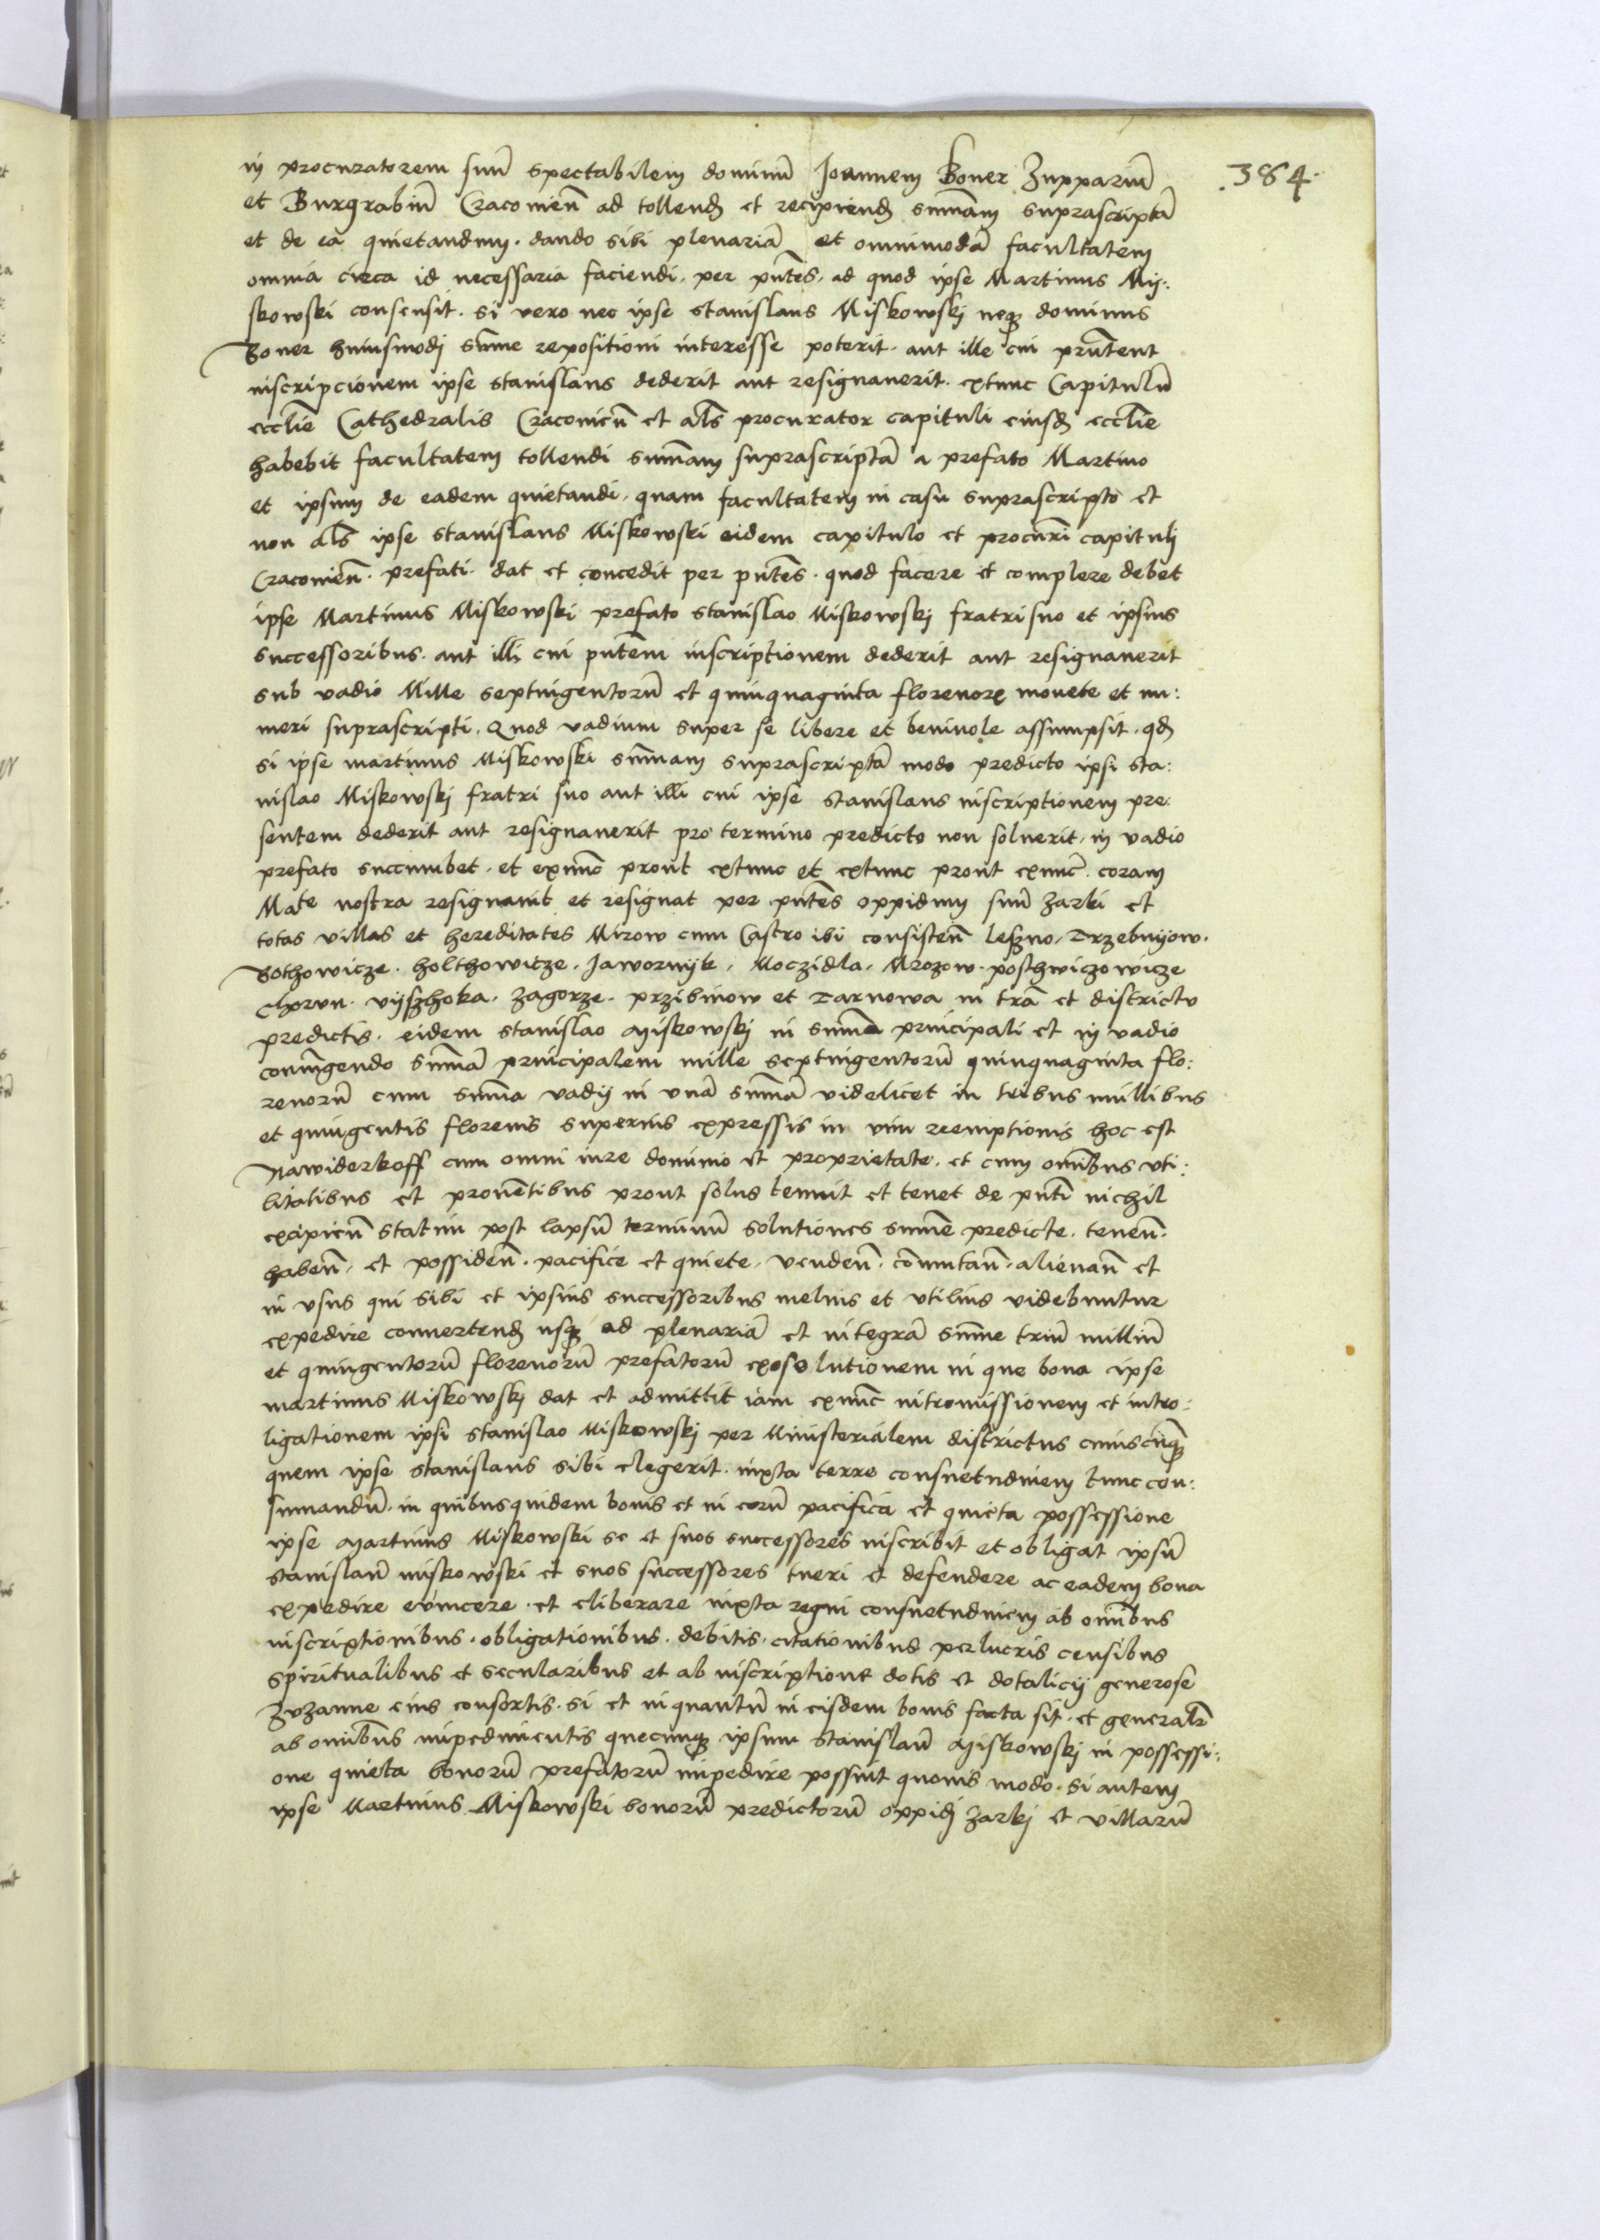 .384.
in procuratorem suū spectabilem dominū Joannem Boner Zupparium
et Burgrabiū Cracovien̄ ad tollend et recipiend summam suprascriptā
et de ea quietandum. dando sibi plenariā et omnimodā facultatem
omnia circa id necessaria faciendi. per pn̄tes. ad quod ipse Martinus Mÿ:
skowski consensit. si vero nec ipse Stanislaus Miskowskj neqȝ dominus
Boner huiusmodj sum̄e repositioni interesse poterit. aut ille cui prn̄tem
inscripcionem ipse Stanislaus dederit aut resignauerit. extunc Capitulū
eccl̄ie Cathedralis Cracovien̄ et al̄s procurator capituli eiusd eccl̄ie
habebit facultatem tollendi summam suprascriptā a prefato Martino
et ipsum de eadem quietandi. quam facultatem in casu suprascripto et
non al̄s ipse Stanislaus Miskowski eidem capitulo et procur̄i capitulj
Cracovien̄. prefati. dat et concedit per pn̄tes. quod facere et complere debet
ipse Martinus Miskowski prefato Stanislao Miskowskj fratri suo et ipsius
successoribus. aut illi cui pn̄tem inscriptionem dederit aut resignauerit
sub vadio Mille septingentorū et quinquaginta florenorꝝ monete et nu:
meri suprascripti. Quod vadium super se libere et benivole assumpsit. qd
si ipse martinus Miskowski sum̄am suprascriptā modo predicto ipsi sta:
nislao Miskowskj fratri suo aut illi cui ipse stanislaus inscriptionem pre:
sentem dederit aut resignauerit pro termino predicto non soluerit. in vadio
prefato succumbet. et exnunc prout extunc et extunc prout exnunc. coram
Mate nostra resignauit et resignat per pn̄tes oppidum suū Zarki et
totas villas et hereditates Mirow cum Castro ibi consisten̄ Leszno. Trzebnÿow.
Bothowicze. holthowicze. Jawornÿk. Moczidla. Mrozow. poschwiczowicze
Chorun. vÿszhoka. Zagorze. przibinow et Tarnowa in trā et districtu
predictis. eidem stanislao Miskowskj in sum̄a principali et in vadio
coniungendo sum̄ā principalem mille septingentorū quinquaginta flo:
renorū cum sum̄a vadij in vnā sum̄ā videlicet in tribus millibus
et quingentis florenis superius expressis in vim reemptionis hoc est
Nawiderkoff cum omni iure dominio et proprietate. et cum om̄ibus vti:
litatibus et prouentibus prout solus tenuit et tenet de pn̄ti nichil
excipien̄ statim post lapsū terminū solutiones sum̄e predicte. tenen̄.
haben̄. et possiden̄. pacifice et quiete. venden̄. com̄utan̄. alienan̄ et
in vsus qui sibi et ipsius successoribus melius et vtilius videbuntur
expedire conuertend usqȝ ad plenariā et integrā sum̄e triū milliū
et quingentorū florenorū prefatorū exosolutionem in que bona ipse
martinus Miskowskj dat et admittit iam exnunc intromissionem et intro:
ligationem ipsi Stanislao Miskowskj per Ministerialem districtus cuiuscūqȝ
quem ipse stanislaus sibi elegerit. iuxta terre consuetudinem tunc con:
sumandū. in quibusquidem bonis et in eorū pacifica et quieta possessione
ipse Martinus Miskowski se et suos successores inscribit et obligat ipsū
stanislaū miskowski et suos successores tueri et defendere ac eadem bona
expedire evincere. et eliberare iuxta regni consuetudinem ab om̄ibus
inscriptionibus. obligationibus. debitis. citationibus perlucris censibus
spiritualibus et secularibus et ab inscriptione dotis et dotalicij generose
Zuzanne eius consortis. si et in quantū in eisdem bonis facta sit. et generalr̄
ab om̄ibus impedimentis quecunqȝ ipsum stanislaū Miskowskj in possessi:
one quieta bonorū prefatorū impedire possint quouis modo. si autem
ipse Martinus Miskowski bonorū predictorū oppidj Zarkj et villarū